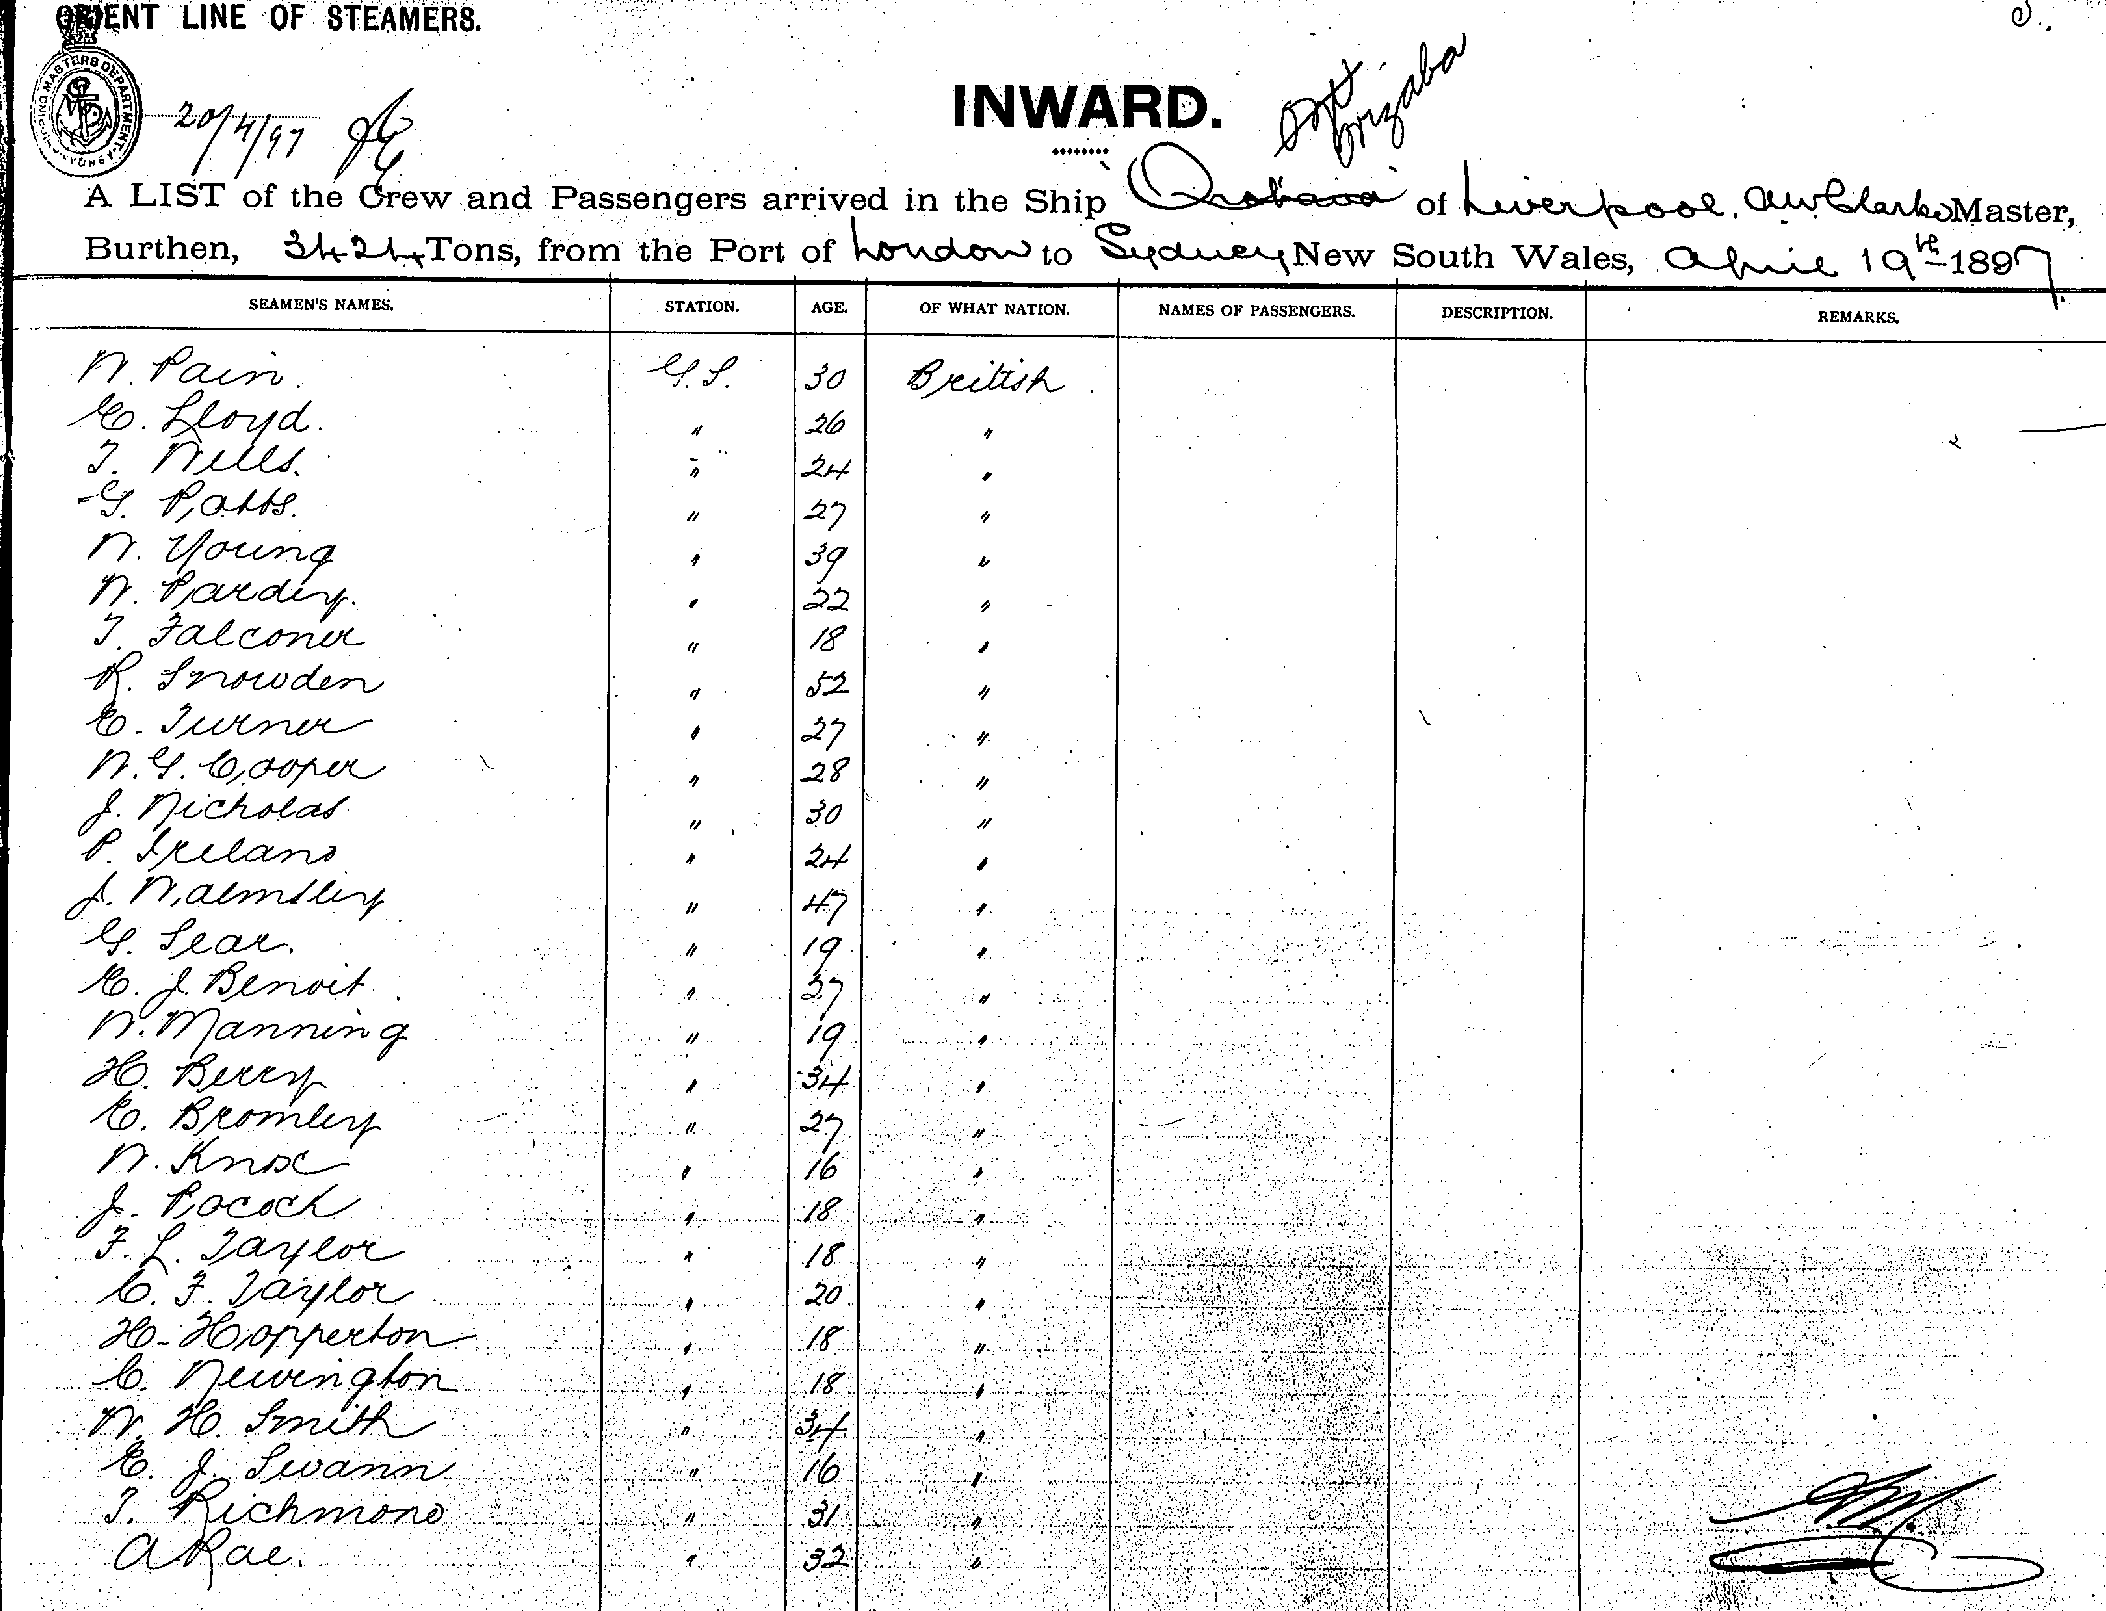 ORIENT LINE OF STEAMERS.
SHIPPING MASTERS DEPARTMENT
20/4/97
INWARD.
Orizaba
A LIST of the Crew and Passengers arrived in the Ship of Liverpool. A.W. Clarke Master,
Burthen, 3424 Tons, from the Port of London to Sydney New South Wales, April 19th 1897.
SEAMEN'S NAMES. STATION. AGE. OF WHAT NATION. NAMES OF PASSENGERS. DESCRIPTION. REMARKS.
W. Pain. G.S. 30 British
E. Lloyd. " 26 "
T. Wells. " 24 "
G. Potts. " 27 "
W. Young " 39 "
W. Pardey. " 22 "
T. Falconer " 18 "
R. Snowden " 52 "
E. Turner " 27 "
W.G. Cooper " 28 "
J. Nicholas " 30 "
P. Ireland " 24 "
J. Walmsley " 47 "
G. Sear. " 19 "
E. J. Benoit " 37 "
W. Manning " 19 "
H. Berry " 34 "
E. Bromley " 27 "
W. Knox " 16 "
J. Pocock " 18 "
F. L. Taylor " 18 "
C. F. Taylor " 20 "
H. Hopperton " 18 "
C. Newington " 18 "
W. H. Smith " 34 "
E. J. Swann " 16 "
T. Richmond " 31 "
A Rae. " 32 "